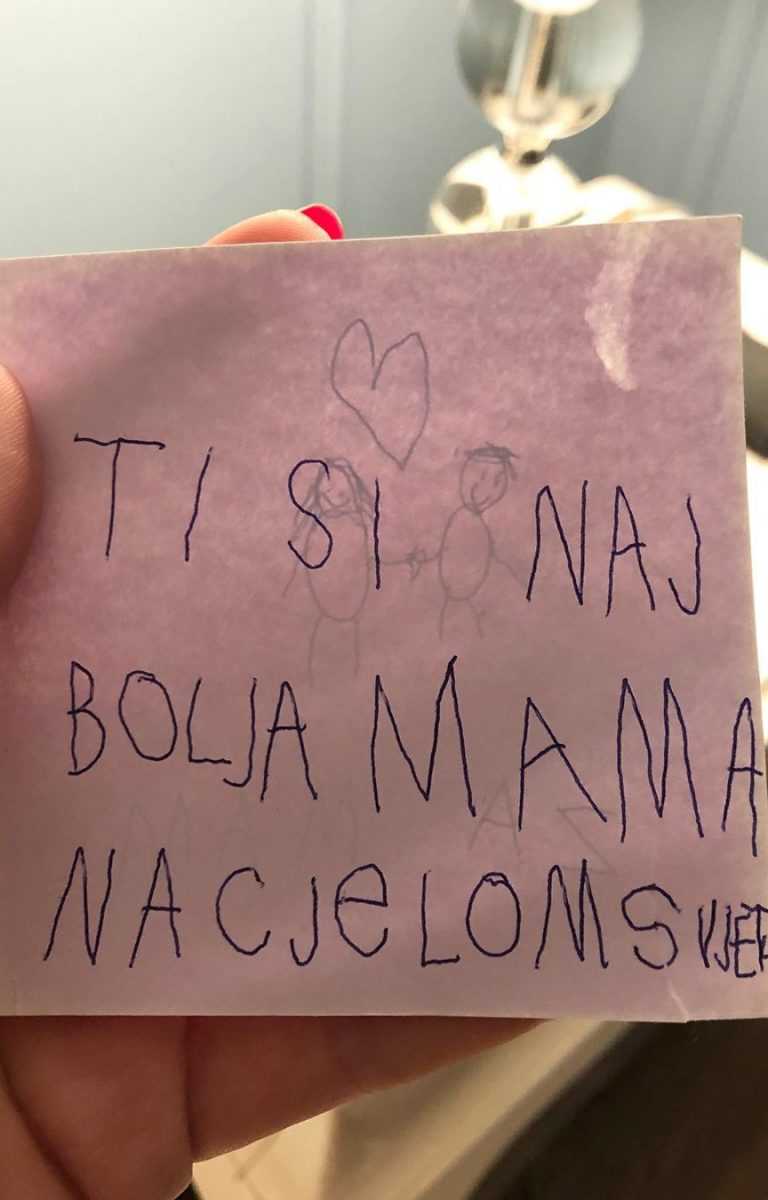 TI SI NAJ
BOLJA MAMA
NA CJeLOM